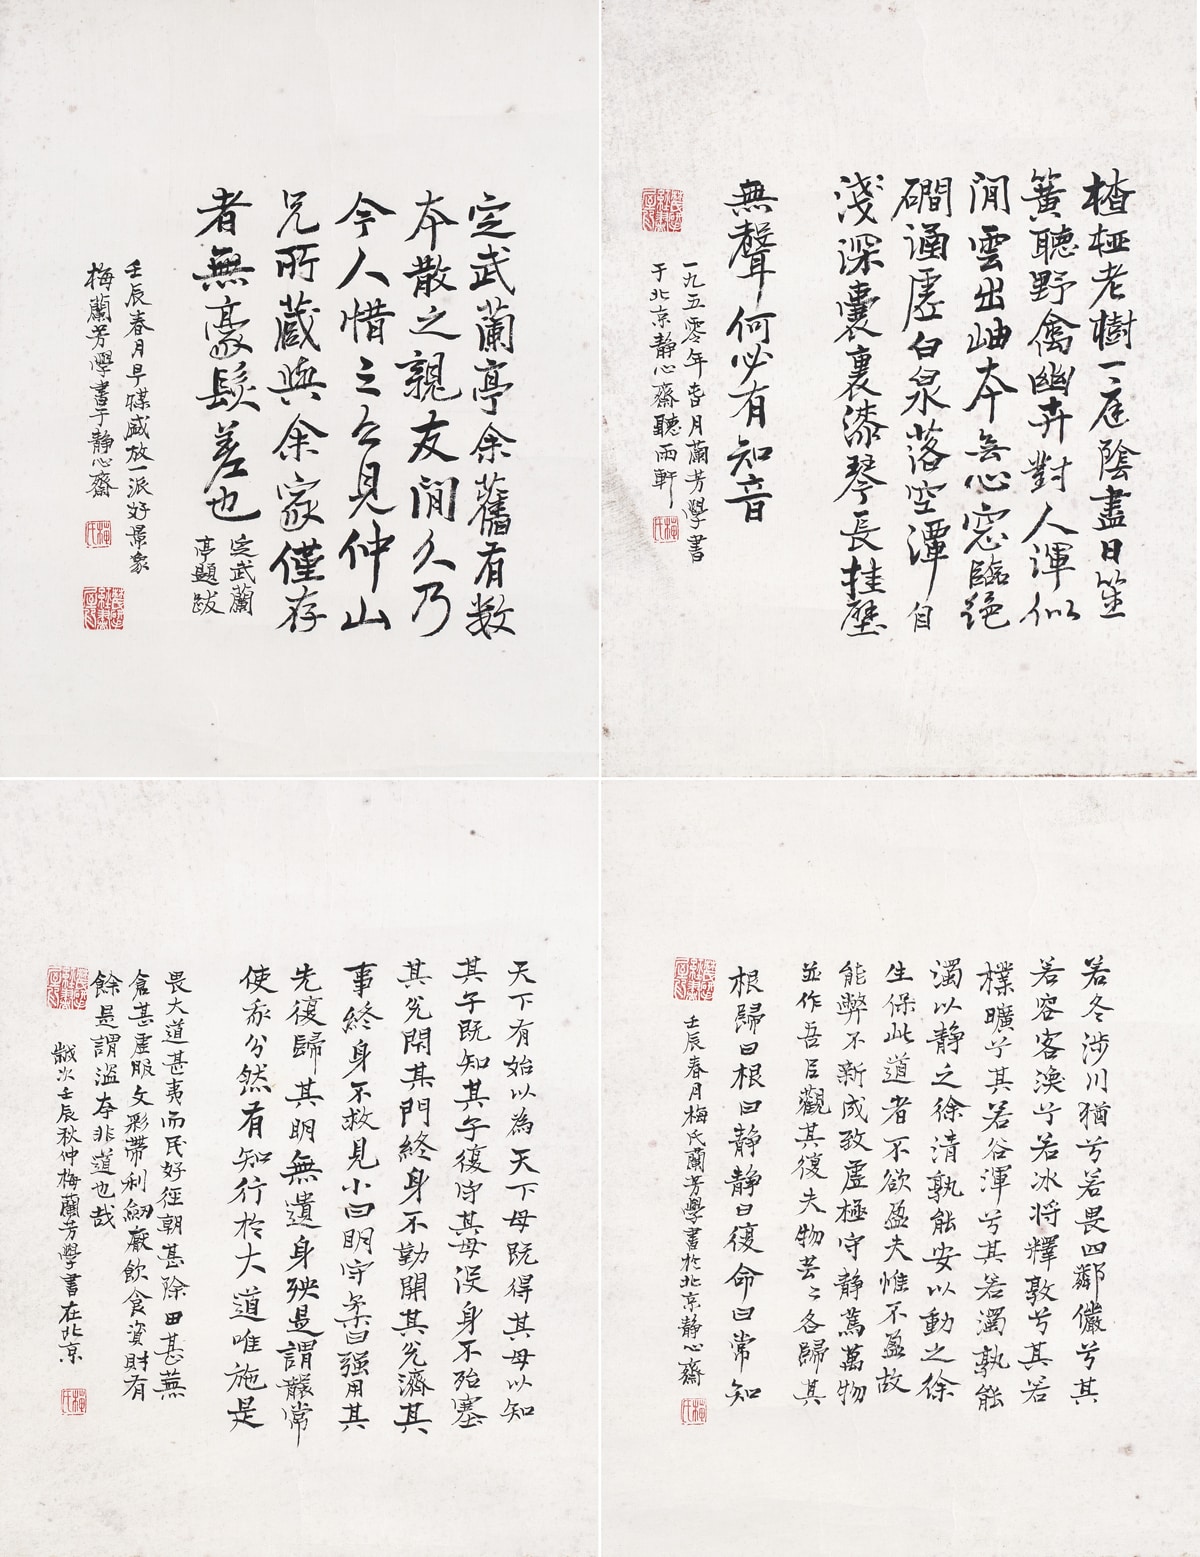 楂椏老樹一庭陰盡日笙
簧聽野禽幽卉對人渾似
閒雲出岫本无心窓臨絕
磵通虛白泉落空潭自
淺深囊裏漆琴長挂壁
無聲何必有知音
一九五零年春月蘭芳學書
于北京静心齋聽雨軒
梅氏
定武蘭亭余舊有数
本散之親友間久乃
今人惜之今見仲山
兄所蔵與余家僅存
者無豪髮差也
定武蘭
亭題跋
壬辰春月早煤盛放一派好景象
梅蘭芳學書于静心齋
梅氏
若冬涉川猶兮若畏四鄰儼兮其
若容客渙兮若冰将釋敦兮其若
樸曠兮其若谷渾兮其若濁孰能
濁以静之徐清孰能安以動之徐
生保此道者不欲盈夫惟不盈故
能弊不新成致虛極守静篤萬物
並作吾以觀其復夫物芸々各歸其
根歸曰根曰静静曰復命曰常知
壬辰春月梅氏蘭芳學書於北京静心齋
梅氏
天下有始以為天下母既得其母以知
其子既知其子復守其母没身不殆塞
其兌閉其門終身不勤開其兌濟其
事終身不救見小曰明守柔曰强用其
先復歸其明無遺身殃是謂襲常
使我介然有知行於大道唯施是
畏大道甚夷而民好徑朝甚除田甚蕪
倉甚虛服文彩帶利劒厭飲食資財有
餘是謂盗夸非道也哉
歲次壬辰秋仲梅蘭芳學書在北京
梅氏